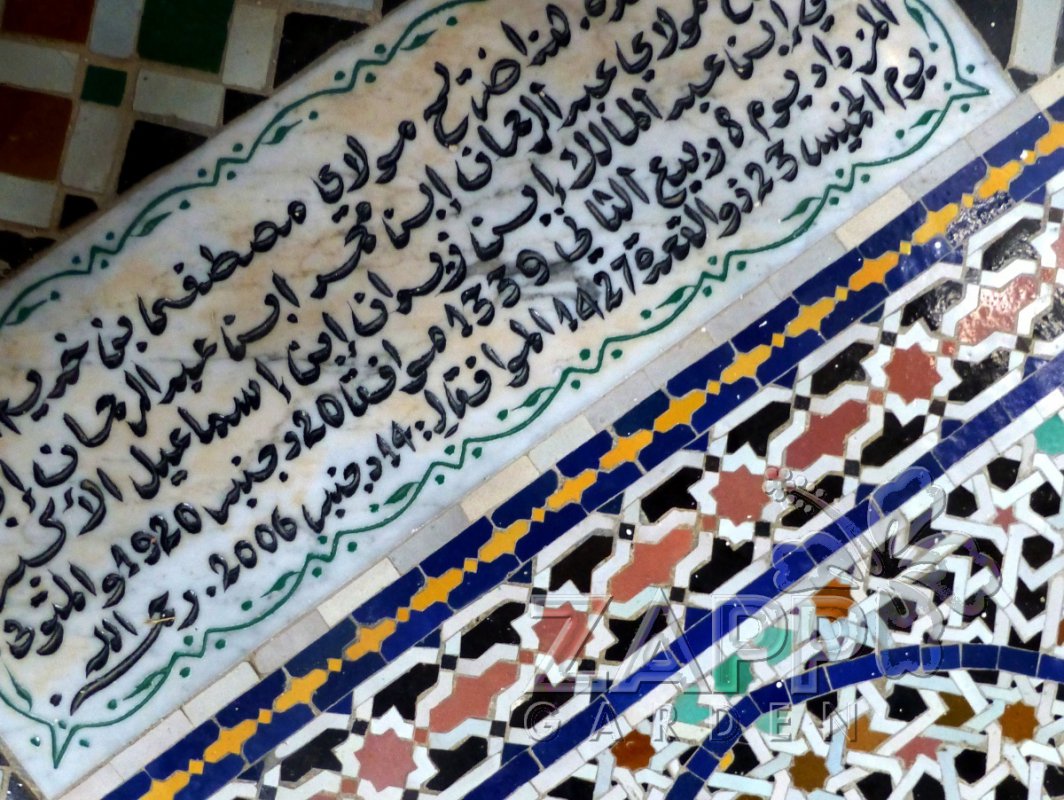 هذا ضريح مولاي مصطفى بن خديـ
مولاي عبد الرحمان إبن محمد ابن عبد الرحمان إبن
ابن عبد المالك إبن زيدان إبن إسماعيل الأكبر
المزداد يوم 8 ربيع الثاني 1339 موافق 20 دجنبر 1920 والمتوفى
يوم الخميس 23 ذو القعدة 1427 الموافق لـ: 14 دجنبر 2006. رحمه الله
ZAPP
GARDEN